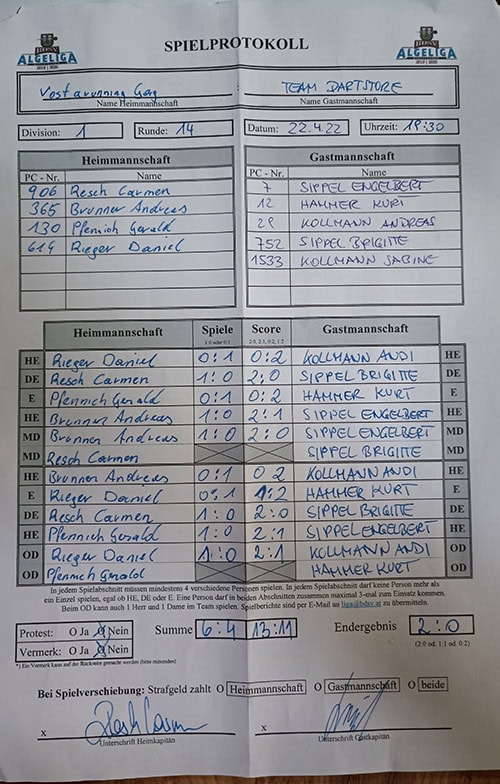 ALGELIGA
SPIELPROTOKOLL
ALGELIGA
TEAM DARTSTORE
Name Heimmannschaft Name Gastmannschaft
Division: 1 Runde: 14 Datum: 22.4.22 Uhrzeit: 19:30
Heimmannschaft Gastmannschaft
PC - Nr. Name PC - Nr. Name
906 Resch Carmen 7 SIPPEL ENGELBERT
365 Brunner Andreas 12 HAMMER KURT
130 Pfennich Gerald 29 KOLLMANN ANDREAS
614 Rieger Daniel 752 SIPPEL BRIGITTE
1533 KOLLMANN SABINE
Heimmannschaft Spiele Score Gastmannschaft
1:0 oder 0:1 2:0, 2:1, 0:2, 1:2
HE Rieger Daniel 0:1 0:2 KOLLMANN ANDI HE
DE Resch Carmen 1:0 2:0 SIPPEL BRIGITTE DE
E Pfennich Gerald 0:1 0:2 HAMMER KURT E
HE Brunner Andreas 1:0 2:1 SIPPEL ENGELBERT HE
MD Brunner Andreas 1:0 2:0 SIPPEL ENGELBERT MD
MD Resch Carmen SIPPEL BRIGITTE MD
HE Brunner Andreas 0:1 0 2 KOLLMANN ANDI HE
E Rieger Daniel 0:1 1:2 HAMMER KURT E
DE Resch Carmen 1:0 2:0 SIPPEL BRIGITTE DE
HE Pfennich Gerald 1:0 2:1 SIPPEL ENGELBERT HE
OD Rieger Daniel 1:0 2:1 KOLLMANN ANDI OD
OD Pfennich Gerald HAMMER KURT OD
In jedem Spielabschnitt müssen mindestens 4 verschiedene Personen spielen. In jedem Spielabschnitt darf keine Person mehr als
ein Einzel spielen, egal ob HE, DE oder E. Eine Person darf in beiden Abschnitten zusammen maximal 3-mal zum Einsatz kommen.
Beim OD kann auch 1 Herr und 1 Dame im Team spielen. Spielberichte sind per E-Mail an liga@bdsv.at zu übermitteln.
Protest: O Ja O Nein Summe 6:4 13:11 Endergebnis 2:0
Vermerk: O Ja O Nein (2:0 od. 1:1 od. 0:2)
*) Ein Vermerk kann auf der Rückseite gemacht werden (bitte ankreuzen)
Bei Spielverschiebung: Strafgeld zahlt O Heimmannschaft O Gastmannschaft O beide
x x
Unterschrift Heimkapitän Unterschrift Gastkapitän